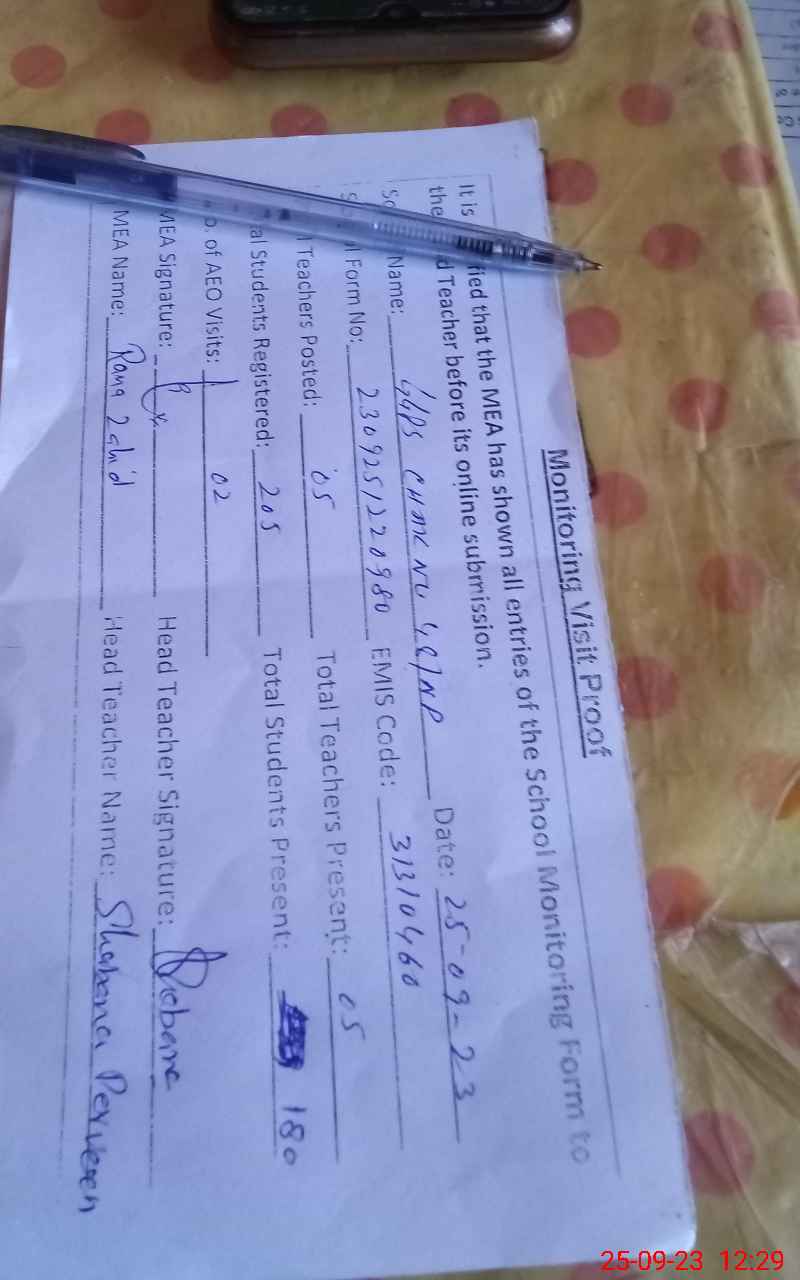 Monitoring Visit Proof
It is fied that the MEA has shown all entries of the School Monitoring Form to
the d Teacher before its online submission.
Name: GGPS CHAK NO Date: 25-09-23
l Form No: 2309251220980 EMIS Code: 31310460
l Teachers Posted: 05 Total Teachers Present: 05
al Students Registered: 205 Total Students Present: 180
o. of AEO Visits: 02
MEA Signature: Head Teacher Signature: Shobana
MEA Name: Rana Zahid Head Teacher Name: Shabana Perveen
25-09-23 12:29